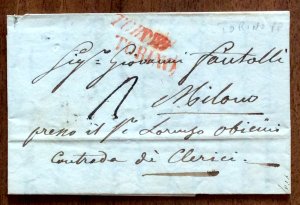 TORINO
TORINO
Sig.r Giovanni Fantolli
Milano
presso il S.r Lorenzo
Contrada di Clerici.